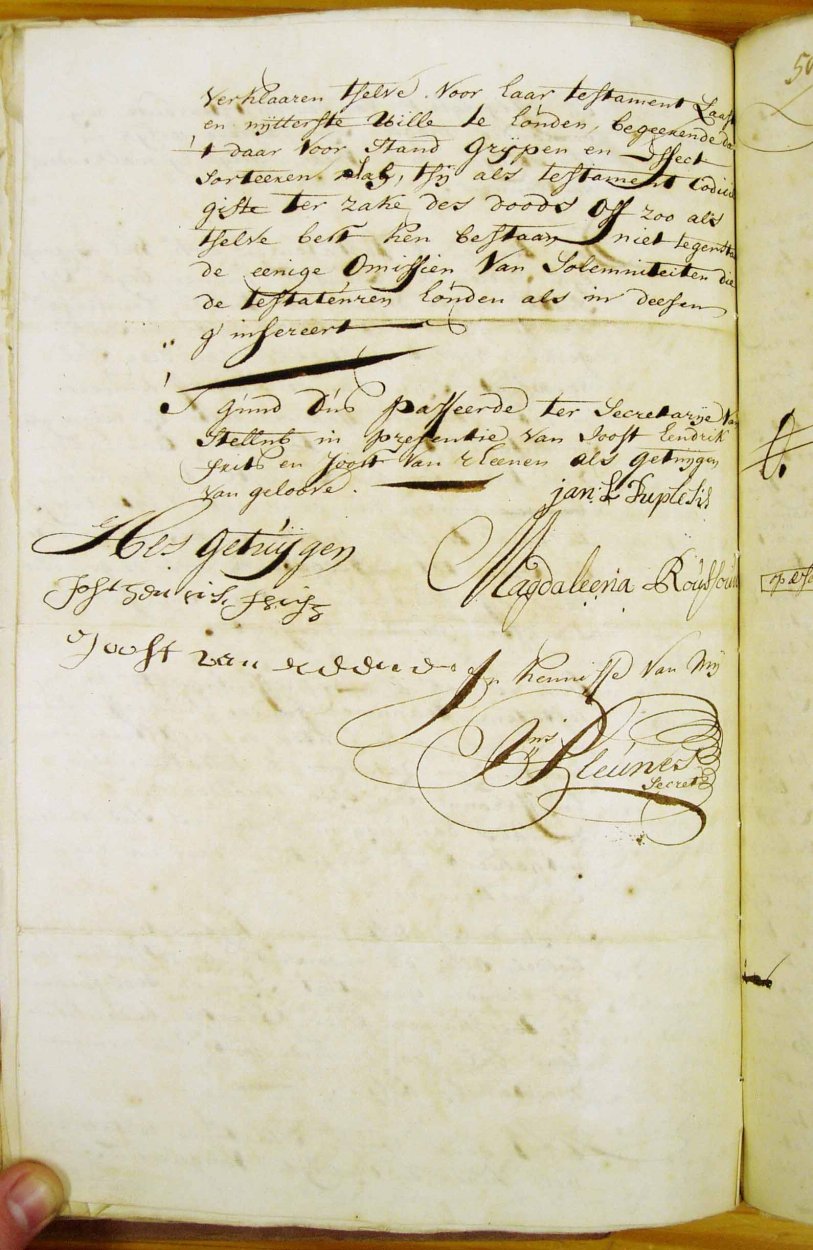 Verklaaren tselve voor haar testament Laast
en uijtterste Wille te houden, begeerende da
't daar voor Stand Grijpen en Effect
Sorteeren Zal, 'tsij als testament Codicil
gifte ter zake des doods Off zoo als
tselve best Ken bestaan, niet tegensta
de eenige Omissien Van Solemniteiten die
de testateuren houden als in deesen
g'insereert
T' Gund dus passeerde ter Secretarije Van
Stellenb in presentie Van Joost hendrik
frits en Joost Van als getuijgen
van geloove.
jan L
Als Getuijgen
Magdaleena
Joost van
In Kennisse Van Mij
Secrets
59